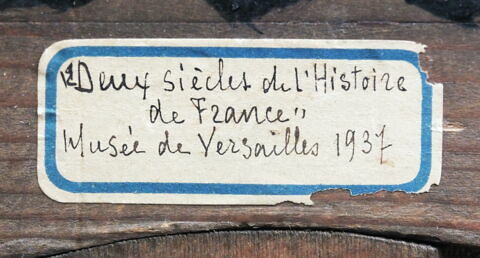 "Deux siècles de l'Histoire
de France"
Musée de Versailles 1937